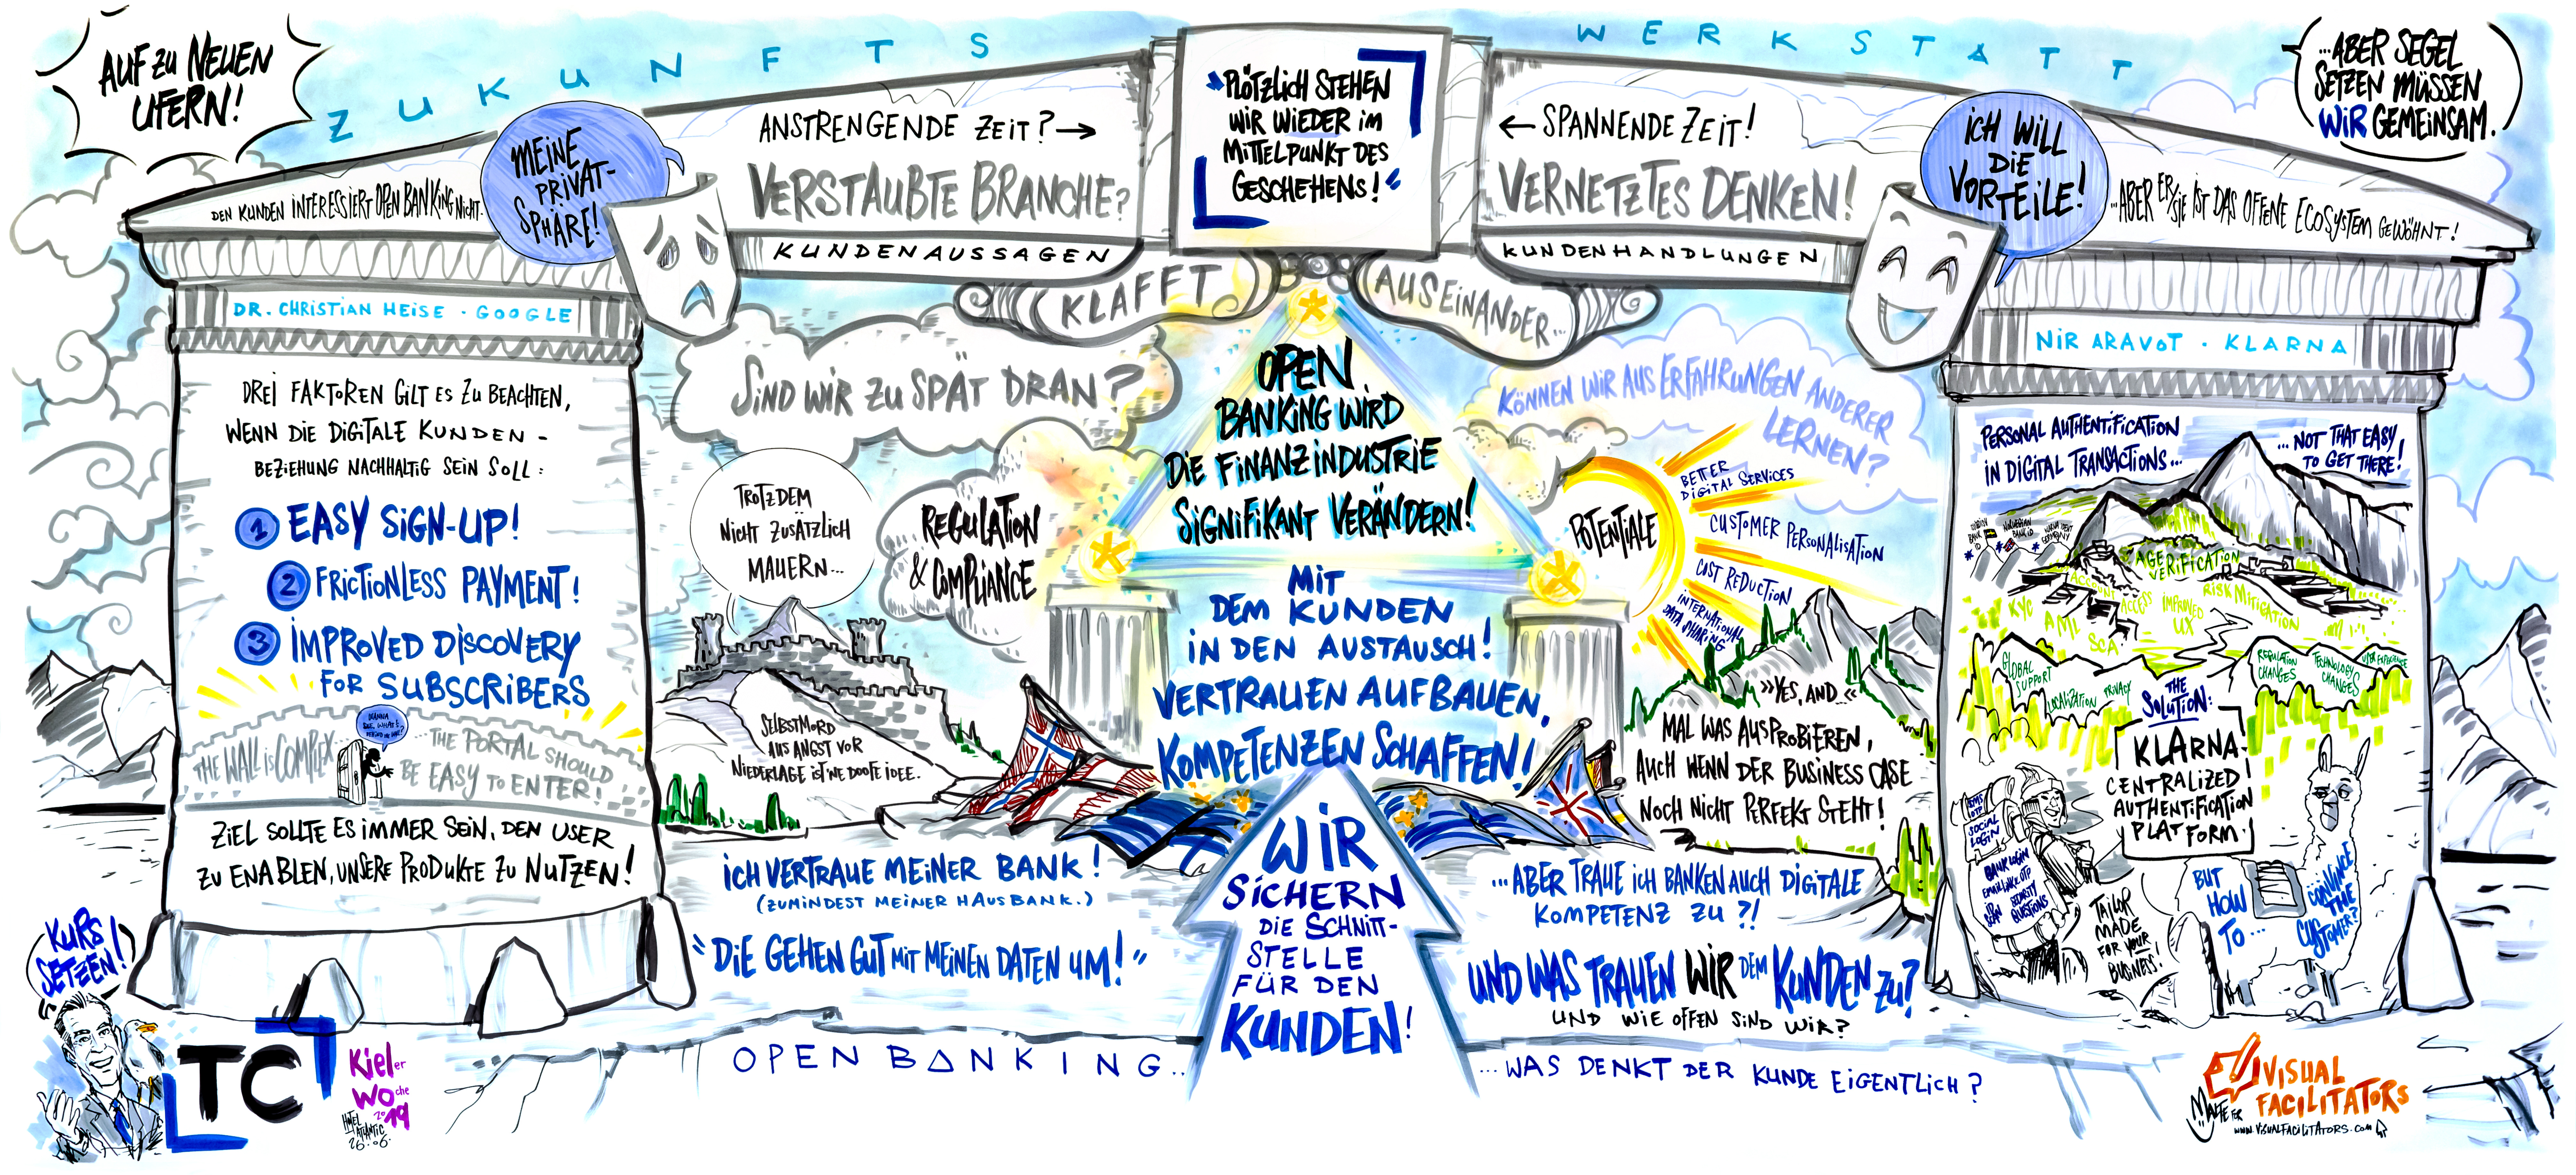 AUF ZU NEUEN
UFERN!
ZUKUNFTS
WERKSTATT
...ABER SEGEL
SETZEN MÜSSEN
WIR GEMEINSAM.
DEN KUNDEN INTERESSIERT OPEN BANKING NICHT.
MEINE
PRIVAT-
SPHÄRE!
ANSTRENGENDE ZEIT? →
VERSTAUBTE BRANCHE?
KUNDENAUSSAGEN
"PLÖTZLICH STEHEN
WIR WIEDER IM
MITTELPUNKT DES
GESCHEHENS!"
← SPANNENDE ZEIT!
VERNETZTES DENKEN!
KUNDENHANDLUNGEN
ICH WILL
DIE
VORTEILE!
...ABER ER/SIE IST DAS OFFENE ECOSYSTEM GEWÖHNT!
KLAFFT
AUSEINANDER...
DR. CHRISTIAN HEISE · GOOGLE
DREI FAKTOREN GILT ES ZU BEACHTEN,
WENN DIE DIGITALE KUNDEN-
BEZIEHUNG NACHHALTIG SEIN SOLL:
1 EASY SIGN-UP!
2 FRICTIONLESS PAYMENT!
3 IMPROVED DISCOVERY
FOR SUBSCRIBERS
THE WALL IS COMPLEX
...THE PORTAL SHOULD
BE EASY TO ENTER!
ZIEL SOLLTE ES IMMER SEIN, DEN USER
ZU ENABLEN, UNSERE PRODUKTE ZU NUTZEN!
SIND WIR ZU SPÄT DRAN?
TROTZDEM
NICHT ZUSÄTZLICH
MAUERN...
REGULATION
& COMPLIANCE
SELBSTMORD
AUS ANGST VOR
NIEDERLAGE IST 'NE DOOFE IDEE.
OPEN
BANKING WIRD
DIE FINANZINDUSTRIE
SIGNIFIKANT VERÄNDERN!
MIT
DEM KUNDEN
IN DEN AUSTAUSCH!
VERTRAUEN AUFBAUEN,
KOMPETENZEN SCHAFFEN!
WIR
SICHERN
DIE SCHNITT-
STELLE
FÜR DEN
KUNDEN!
KÖNNEN WIR AUS ERFAHRUNGEN ANDERER
LERNEN?
POTENTIALE
BETTER
DIGITAL SERVICES
CUSTOMER PERSONALISATION
COST REDUCTION
INTERNATIONAL
DATA SHARING
»YES, AND...«
MAL WAS AUSPROBIEREN,
AUCH WENN DER BUSINESS CASE
NOCH NICHT PERFEKT STEHT!
ICH VERTRAUE MEINER BANK!
(ZUMINDEST MEINER HAUSBANK.)
"DIE GEHEN GUT MIT MEINEN DATEN UM!"
...ABER TRAUE ICH BANKEN AUCH DIGITALE
KOMPETENZ ZU?!
UND WAS TRAUEN WIR DEM KUNDEN ZU?
UND WIE OFFEN SIND WIR?
OPEN BANKING...
...WAS DENKT DER KUNDE EIGENTLICH?
NIR ARAVOT · KLARNA
PERSONAL AUTHENTIFICATION
IN DIGITAL TRANSACTIONS...
...NOT THAT EASY
TO GET THERE!
AGE
VERIFICATION
ACCOUNT
ACCESS
IMPROVED
UX
RISK MITIGATION
KYC
AML
SCA
GLOBAL
SUPPORT
LOCALIZATION
PRIVACY
REGULATION
CHANGES
TECHNOLOGY
CHANGES
USER EXPERIENCE
THE
SOLUTION:
KLARNA
CENTRALIZED
AUTHENTIFICATION
PLATFORM.
SMS
OTP
SOCIAL
LOGIN
BANK LOGIN
SECURITY
QUESTIONS
TAILOR
MADE
FOR YOUR
BUSINESS!
BUT
HOW
TO...
CONVINCE
THE
CUSTOMER?
KURS
SETZEN!
TC
Kieler
Woche
2019
HOTEL
ATLANTIC
26.06.
VISUAL
FACILITATORS
MALTE
WWW.VISUALFACILITATORS.COM